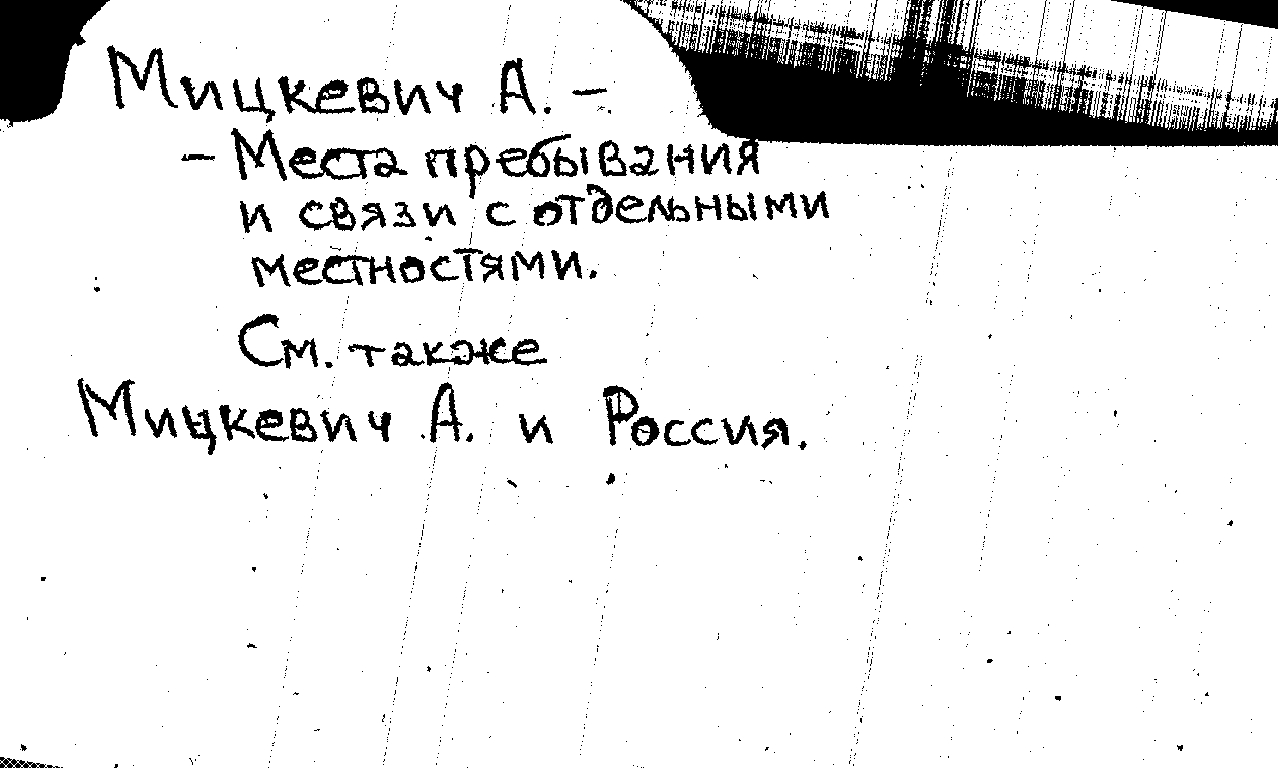 Мицкевич А. –
– Места пребывания
и связи с отдельными
местностями.
См. также
Мицкевич А. и Россия.